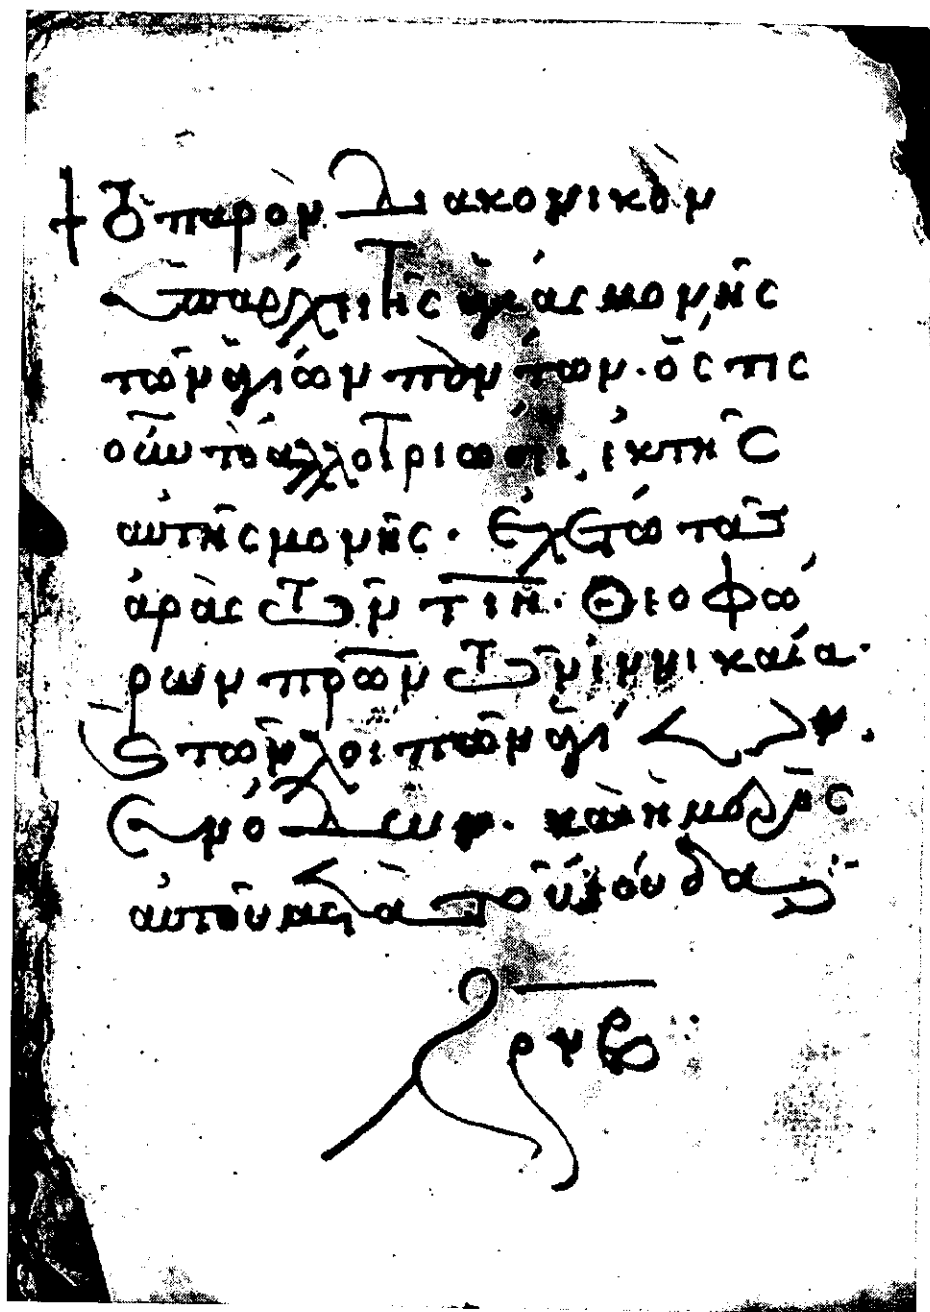 † Τὸ παρὸν διακονικὸν
ὑπάρχει τῆς ἁγίας μονῆς
τῶν ἁγίων πάντων. ὅς τις
οὖν τὸ ἀλλοτριώσει, ἐκ τῆς
αὐτῆς μονῆς. ἐχέτω τὰς
ἀρὰς τῶν τιη. Θεοφώ
ρων πρῶν τῶν ἐν νικαία.
ς τῶν λοιπῶν ἁγί ων.
αὐτοῦ μετὰ τοῦ ϊούδα
ζρνβ